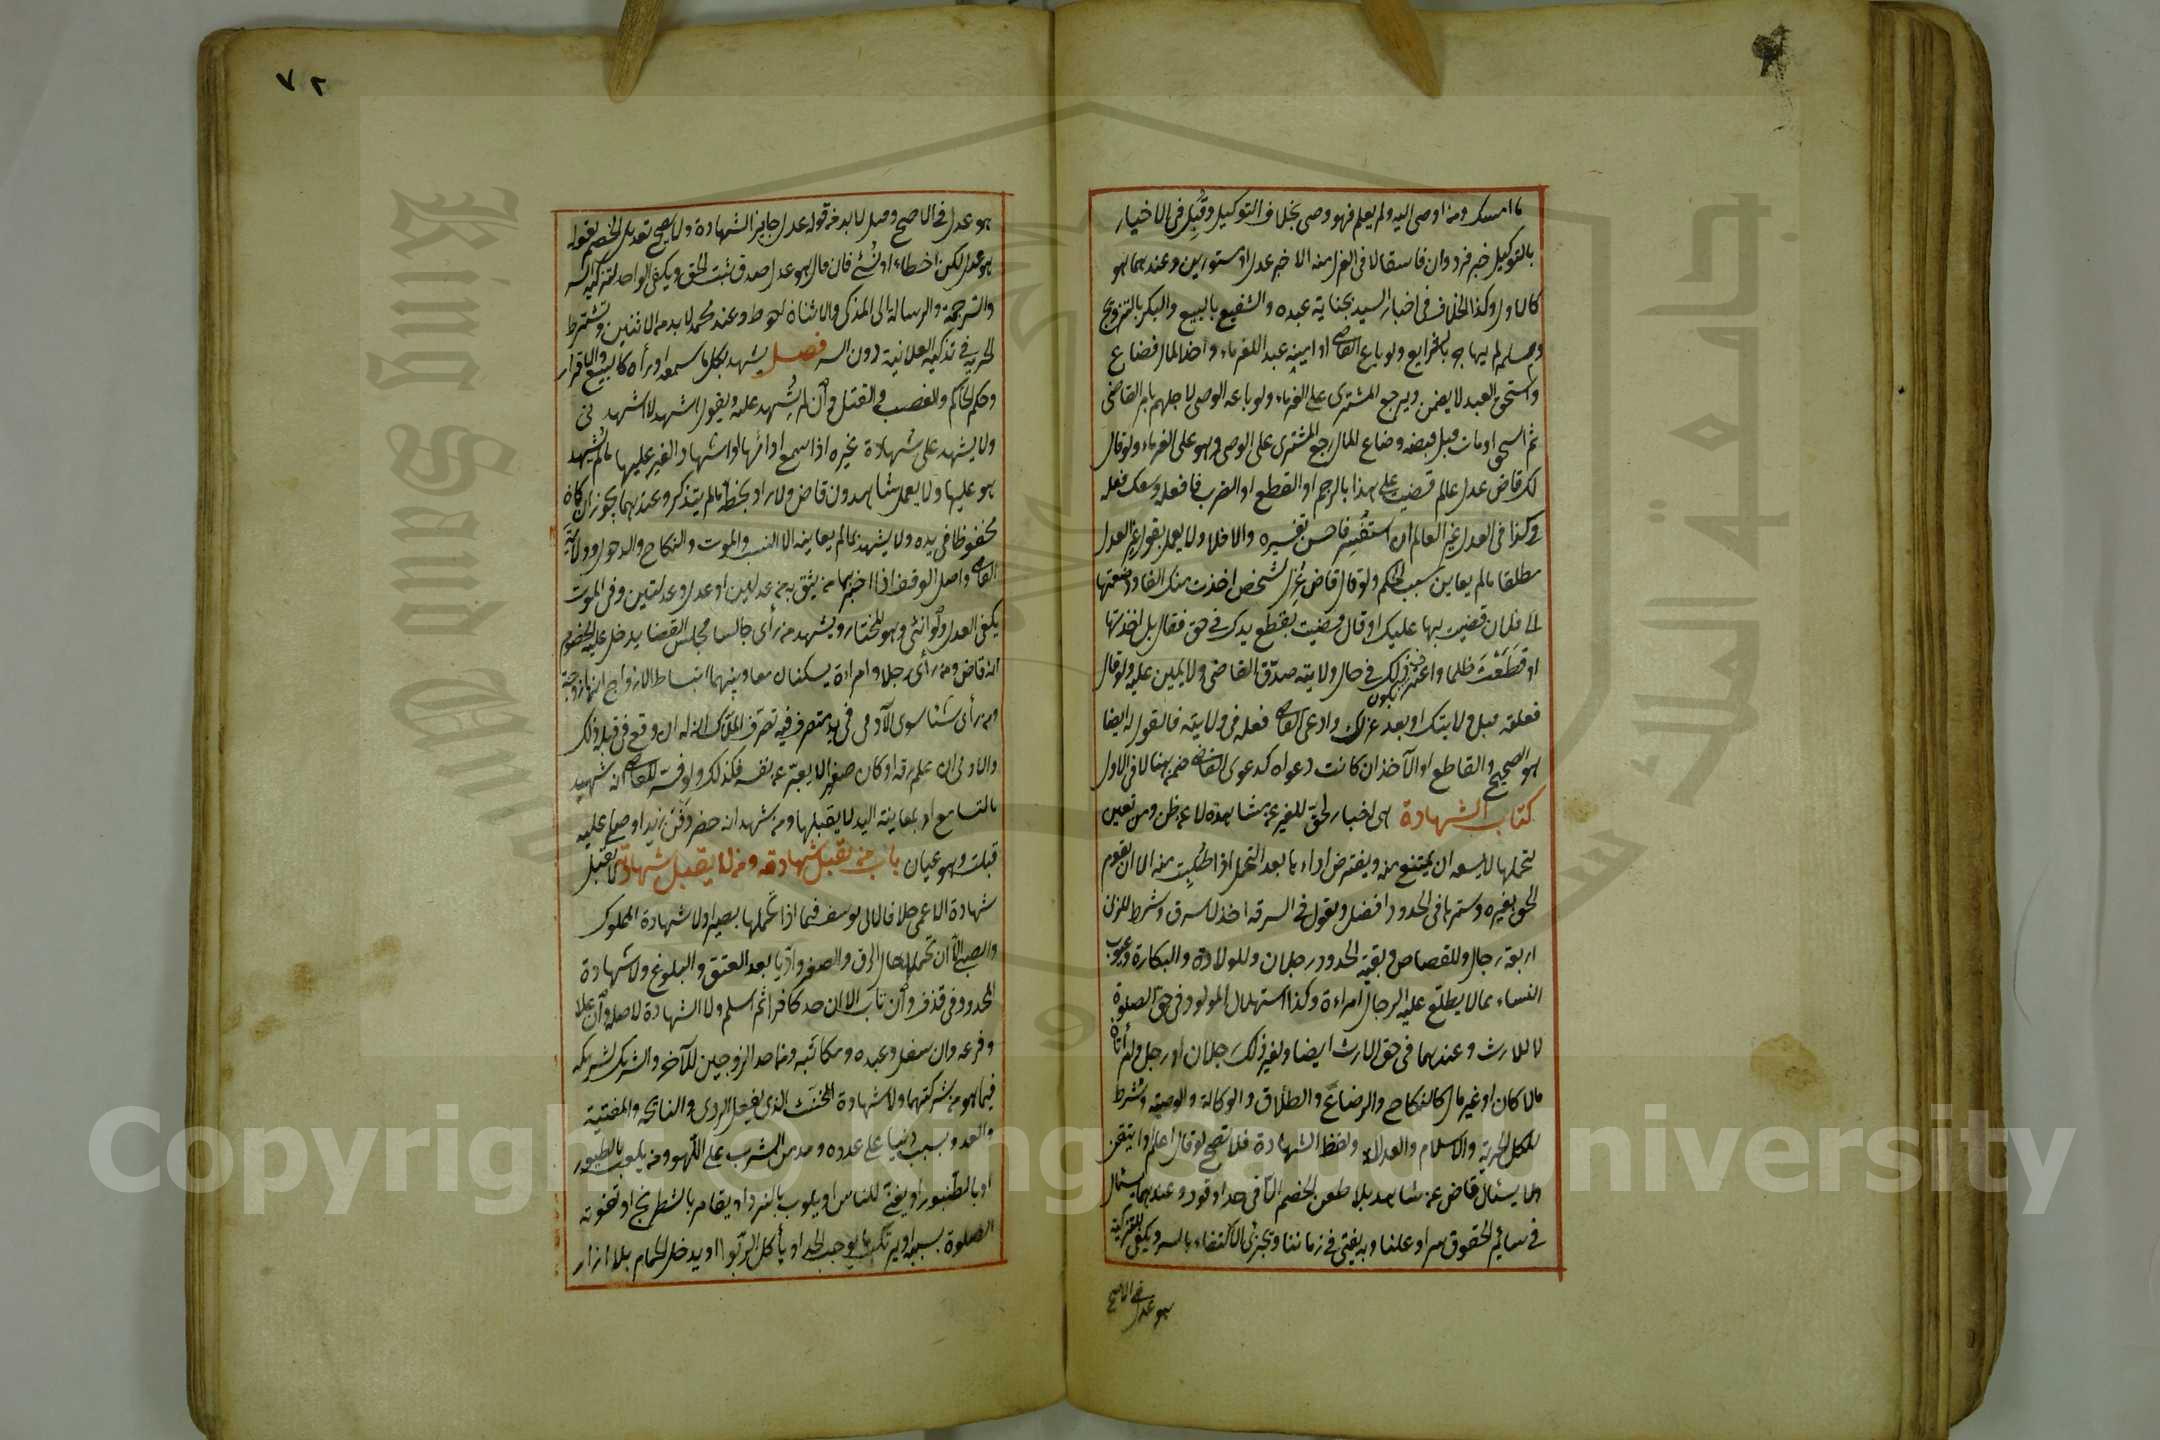 ما امسك ومن اوصى اليه ولم يعلم فهو وصى بخلاف التوكيل وقُبِل فى الاخبار
بالتوكيل خبر فرد وان فاسقا لا فى العزل منه الا خبر عدل او مستورين وعندهما هو
كالاول وكذا الخلاف فى اخبار السيد بجناية عبده والشفيع بالبيع والبكر بالتزويج
ومسلم لم يهاجر بالشرايع ولو باع القاضى او امينه عبدا للغرماء واخذ المال فضاع
واستحق العبد لا يضمن ويرجع المشترى على الغرماء ولو باعه الوصى لاجلهم بامر القاضى
ثم استحق او مات قبل قبضه وضاع المال رجع المشترى على الوصى وهو على الغرماء ولو قال
لك قاض عدل عالم قضيت على هذا بالرجم او القطع او الضرب فافعله وسعك فعله
وكذا فى العدل غير العالم ان استُفْسِر فاحسن تفسيره والا فلا ولا يعمل بقول غير العدل
مطلقا ما لم يعاين سبب الحكم ولو قال قاض عُزِل لشخص اخذت منك الفا ودفعتها
الى فلان قضيت بها عليك او قال قضيت بقطع يدك فى حق فقال بل اخذتها
او قَطَعْتَ ظلما واعترف بكون ذلك فى حال ولايته صدّق القاضى ولا يمين عليه ولو قال
فعلته قبل ولايتك او بعد عزلك وادعى القاضى فعله فى ولايته فالقول له ايضا
هو الصحيح والقاطع او الآخذ ان كانت دعواه كدعوى القاضى ضمن هنا لا فى الاول
كتاب الشهادة هى اخبار لحق للغير عن مشاهدة لا عن ظن ومن تعين
لتحملها لا يسعه ان يمتنع منه ويفترض اداءها بعد التحمل اذا طُلِبت منه الا ان يقوم
الحق بغيره وسترها فى الحدود افضل ويقول فى السرقة اخذ لا سرق وشرط للزنى
اربعة رجال وللقصاص وبقية الحدود رجلان وللولادة والبكارة وعيوب
النساء مما لا يطلع عليه الرجال امراءة وكذا استهلال المولود فى حق الصلوة
لا للارث وعندهما فى حق الارث ايضا ولغير ذلك رجلان او رجل وامرأتان
مالا كان او غير مال كالنكاح والرضاع والطلاق والوكالة والوصية وشرط
للكل الحرية والاسلام والعدالة ولفظ الشهادة فلا تصح لو قال اعلم او اتيقن
ولا يسئل قاض عن شاهد بلا طعن الخصم الا فى حد او قود وعندهما يسئال
فى سائر الحقوق سرا وعلنا وبه يفتى فى زماننا ويجزئ الاكتفاء بالسر ويكفى للتزكية
هو عدل فى الاصح
٧٢
هو عدل فى الاصح وقيل لا بد من قوله عدل جايز الشهادة ولا يصح تعديل الخصم بقوله
هو عدل لكن اخطاء او نُسّى فان قال هو عدل صدق ثبت الحق ويكفى الواحد لتزكية السر
والترجمة والرسالة الى المذكى والاثنان احوط وعند محمد لا بد من الاثنين وتشترط
الحرية فى تذكية العلانية دون السر فصل يشهد بكل ما سمعه او رأه كالبيع والاقرار
وحكم الحاكم والغصب والقتل وان لم يُشهد عليه ويقول اشهد لا اشهدنى
ولا يشهد على شهادة غيره اذا سمع اداءها او اشهاد الغير عليها ما لم يُشهد
هو عليها ولا يعمل شاهد ولا قاض ولا راو بخطه ما لم يتذكر وعندهما يجوز ان كان
محفوظا فى يده ولا يشهد بما لم يعاينه الا النسب والموت والنكاح والدخول وولاية
القاضى واصل الوقف اذا اخبره بها من يثق به من عدلين او عدل وعدلتين وفى الموت
يكفى العدل ولو انثى وهو المختار ويشهد من رأى جالسا مجلس القضا يدخل عليه الخصوم
انه قاض ومن رأى رجلا وامراءة يسكنان معا وبينهما انبساط الازواج انها زوجته
ومن رأى شئا سوى الآدمى فى يد متصرف فيه تصرف الملاك انه له ان وقع فى قلبه ذلك
والادمى ان علم رقه او كان صغيرا لا يعبّر عن نفسه فكذلك ولو فسّر للقاضى انه شهد
بالتسامع او بمعاينة اليد لا يقبلها ومن شهد انه حضر دفن زيد او صلى عليه
قبلت وهو عيان باب من تقبل شهادته ومن لا تقبل شهادته لا تقبل
شهادة الاعمى خلافا لابى يوسف فيما اذا تحملها بصيرا ولا شهادة المملوك
والصبى الا ان تحملا حال الرق والصغر وادّيا بعد العتق والبلوغ ولا شهادة
المحدود فى قذف وان تاب الا ان حد كافرا ثم اسلم ولا الشهادة لاصله وان علا
وفرعه وان سفل وعبده ومكاتبه ومن احد الزوجين للآخر والشريك لشريكه
فيما هو من شركتهما ولا شهادة المخنث الذى يفعل الردى والنائحة والمغنية
والعدو بسبب دنيا على عدوه ومدمن الشرب على اللهو ومن يلعب بالطيور
او بالطنبور او يغنى للناس او يلعب بالنرد او يقامر بالشطرنج او تفوته
الصلوة بسببه او يرتكب ما يوجب الحد او يأكل الربوا او يدخل الحمام بلا ازار
King Saud University
جامعة الملك سعود
Copyright © King Saud University